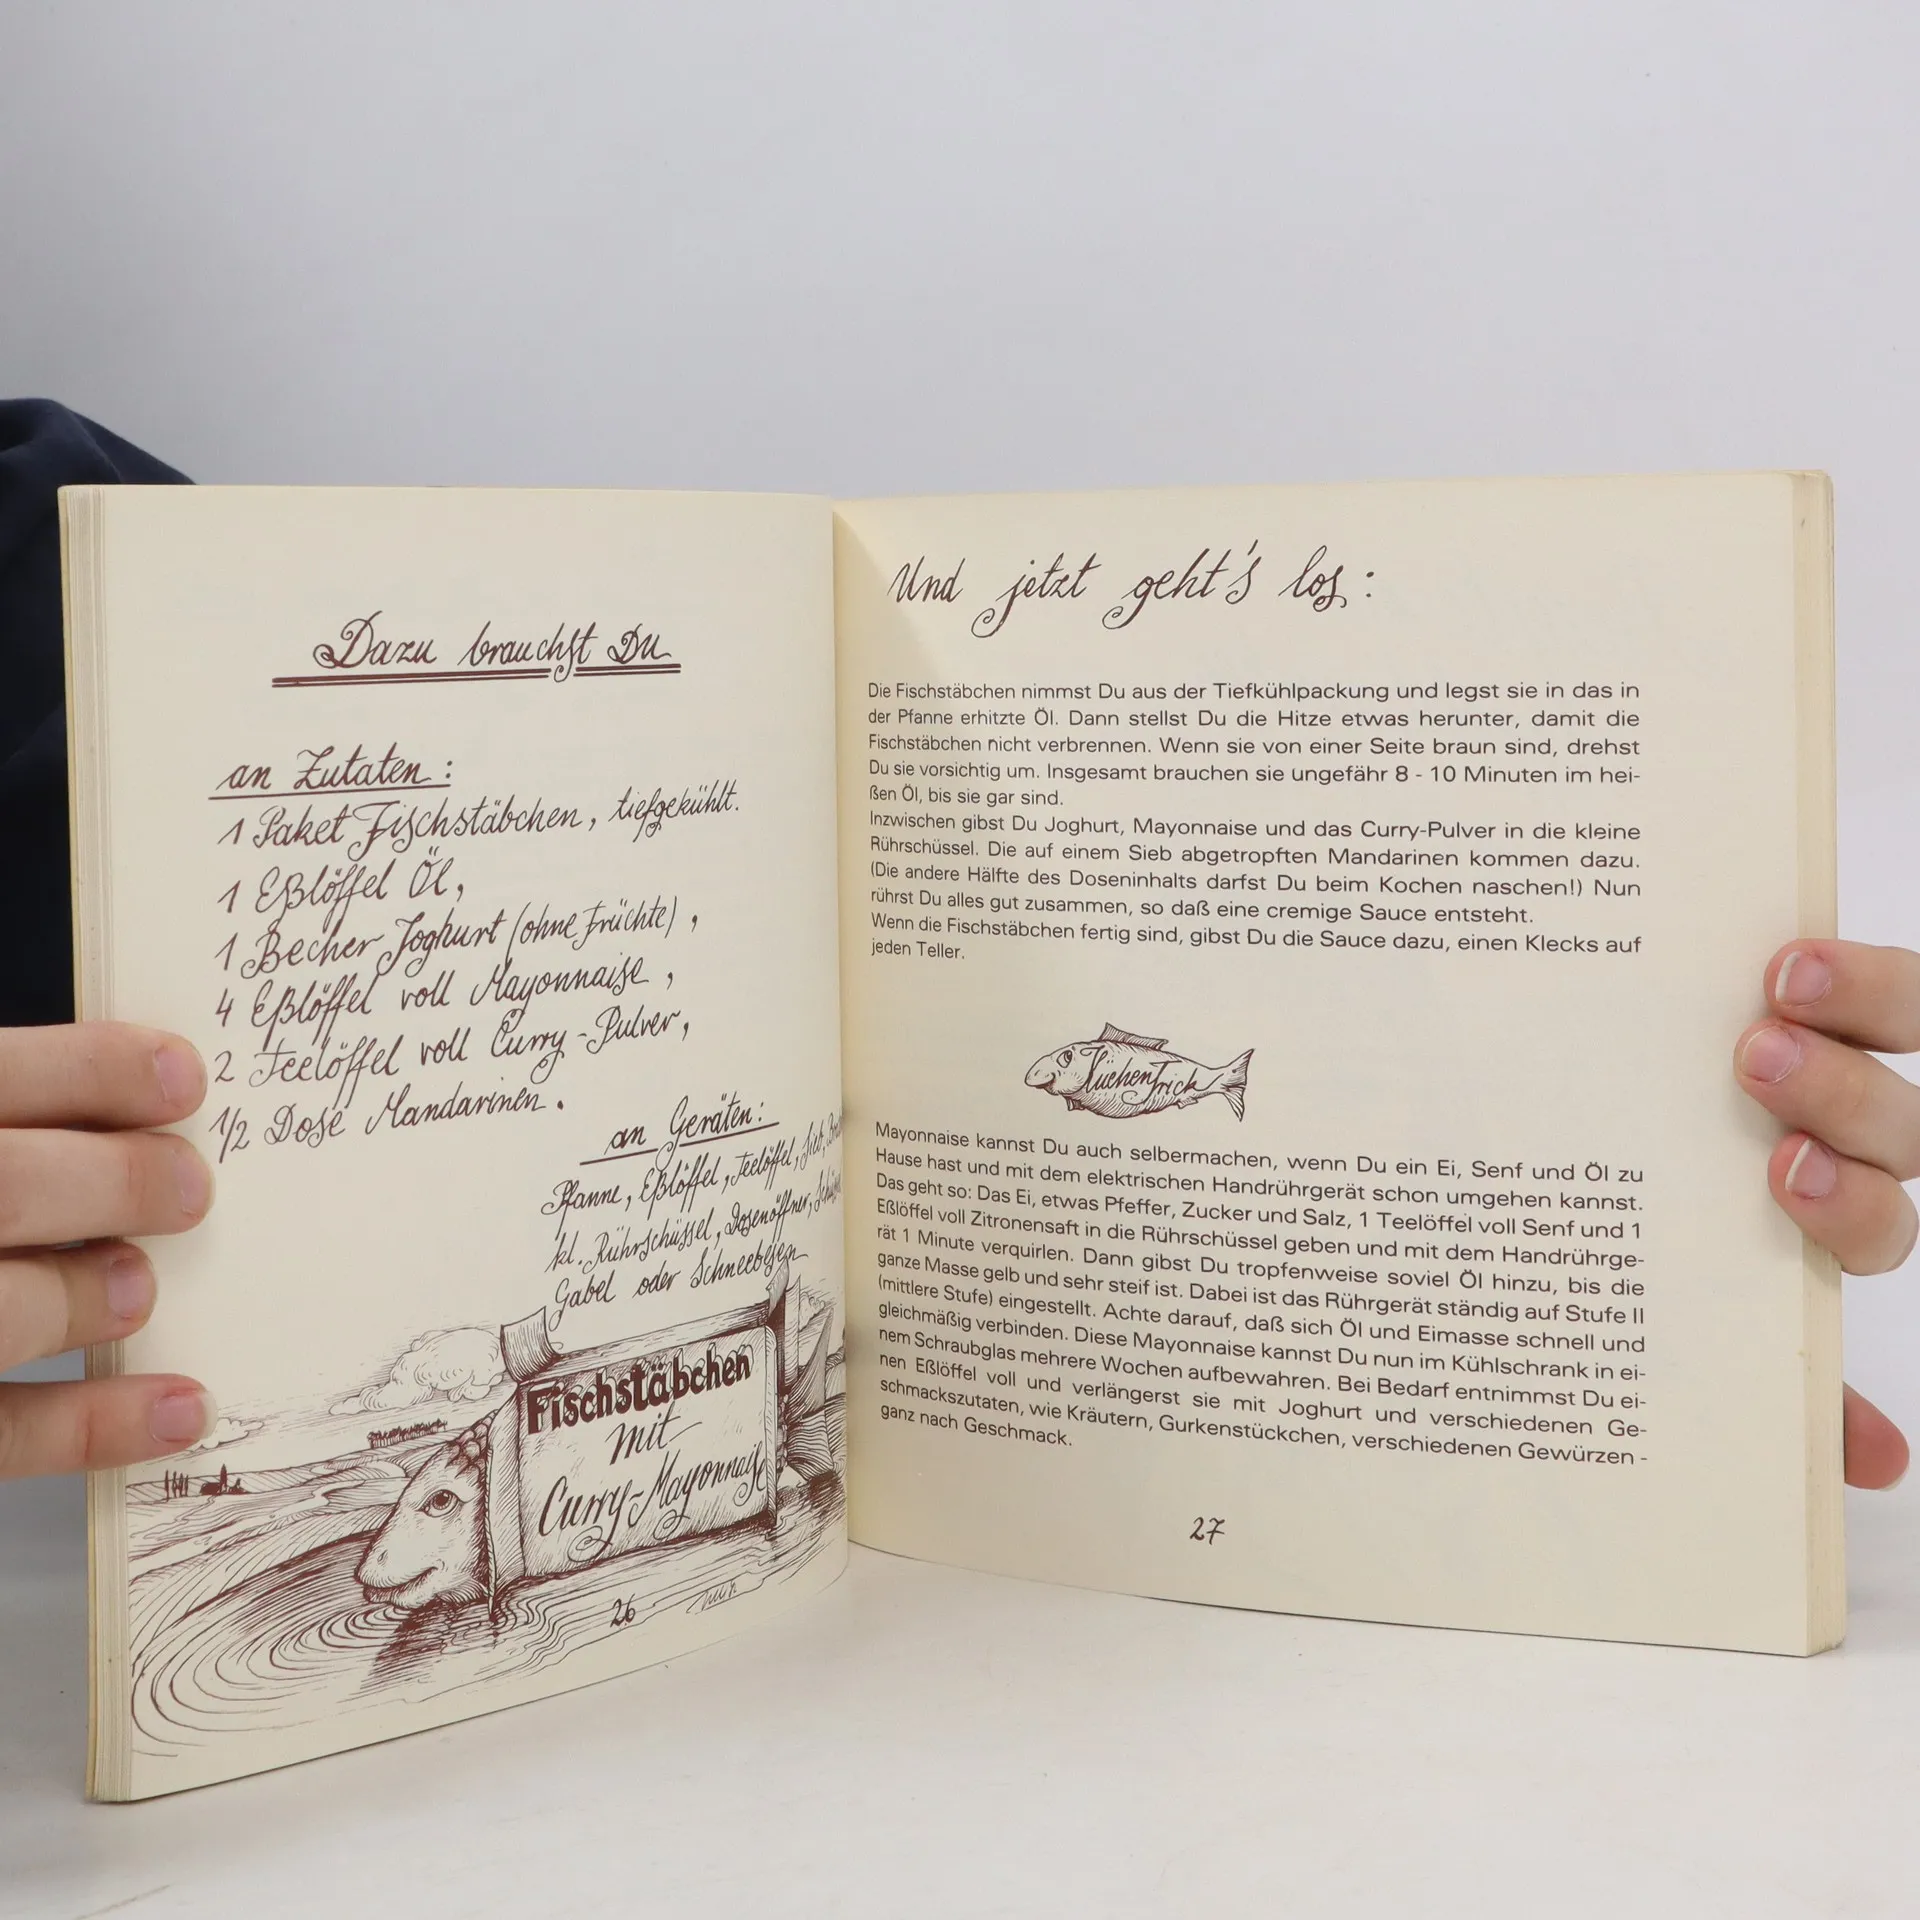 Dazu brauchst Du
an Zutaten:
1 Paket Fischstäbchen, tiefgekühlt.
1 Eßlöffel Öl,
1 Becher Joghurt (ohne Früchte),
4 Eßlöffel voll Mayonnaise,
2 Teelöffel voll Curry-Pulver,
1/2 Dose Mandarinen.
an Geräten:
Pfanne, Eßlöffel, Teelöffel, Sieb,
kl. Rührschüssel, Dosenöffner,
Gabel oder Schneebesen
Fischstäbchen
mit
Curry-Mayonnaise
26
Und jetzt geht's los:
Die Fischstäbchen nimmst Du aus der Tiefkühlpackung und legst sie in das in
der Pfanne erhitzte Öl. Dann stellst Du die Hitze etwas herunter, damit die
Fischstäbchen nicht verbrennen. Wenn sie von einer Seite braun sind, drehst
Du sie vorsichtig um. Insgesamt brauchen sie ungefähr 8 - 10 Minuten im hei-
ßen Öl, bis sie gar sind.
Inzwischen gibst Du Joghurt, Mayonnaise und das Curry-Pulver in die kleine
Rührschüssel. Die auf einem Sieb abgetropften Mandarinen kommen dazu.
(Die andere Hälfte des Doseninhalts darfst Du beim Kochen naschen!) Nun
rührst Du alles gut zusammen, so daß eine cremige Sauce entsteht.
Wenn die Fischstäbchen fertig sind, gibst Du die Sauce dazu, einen Klecks auf
jeden Teller.
Küchentrick
Mayonnaise kannst Du auch selbermachen, wenn Du ein Ei, Senf und Öl zu
Hause hast und mit dem elektrischen Handrührgerät schon umgehen kannst.
Das geht so: Das Ei, etwas Pfeffer, Zucker und Salz, 1 Teelöffel voll Senf und 1
Eßlöffel voll Zitronensaft in die Rührschüssel geben und mit dem Handrührge-
rät 1 Minute verquirlen. Dann gibst Du tropfenweise soviel Öl hinzu, bis die
ganze Masse gelb und sehr steif ist. Dabei ist das Rührgerät ständig auf Stufe II
(mittlere Stufe) eingestellt. Achte darauf, daß sich Öl und Eimasse schnell und
gleichmäßig verbinden. Diese Mayonnaise kannst Du nun im Kühlschrank in ei-
nem Schraubglas mehrere Wochen aufbewahren. Bei Bedarf entnimmst Du ei-
nen Eßlöffel voll und verlängerst sie mit Joghurt und verschiedenen Ge-
schmackszutaten, wie Kräutern, Gurkenstückchen, verschiedenen Gewürzen -
ganz nach Geschmack.
27